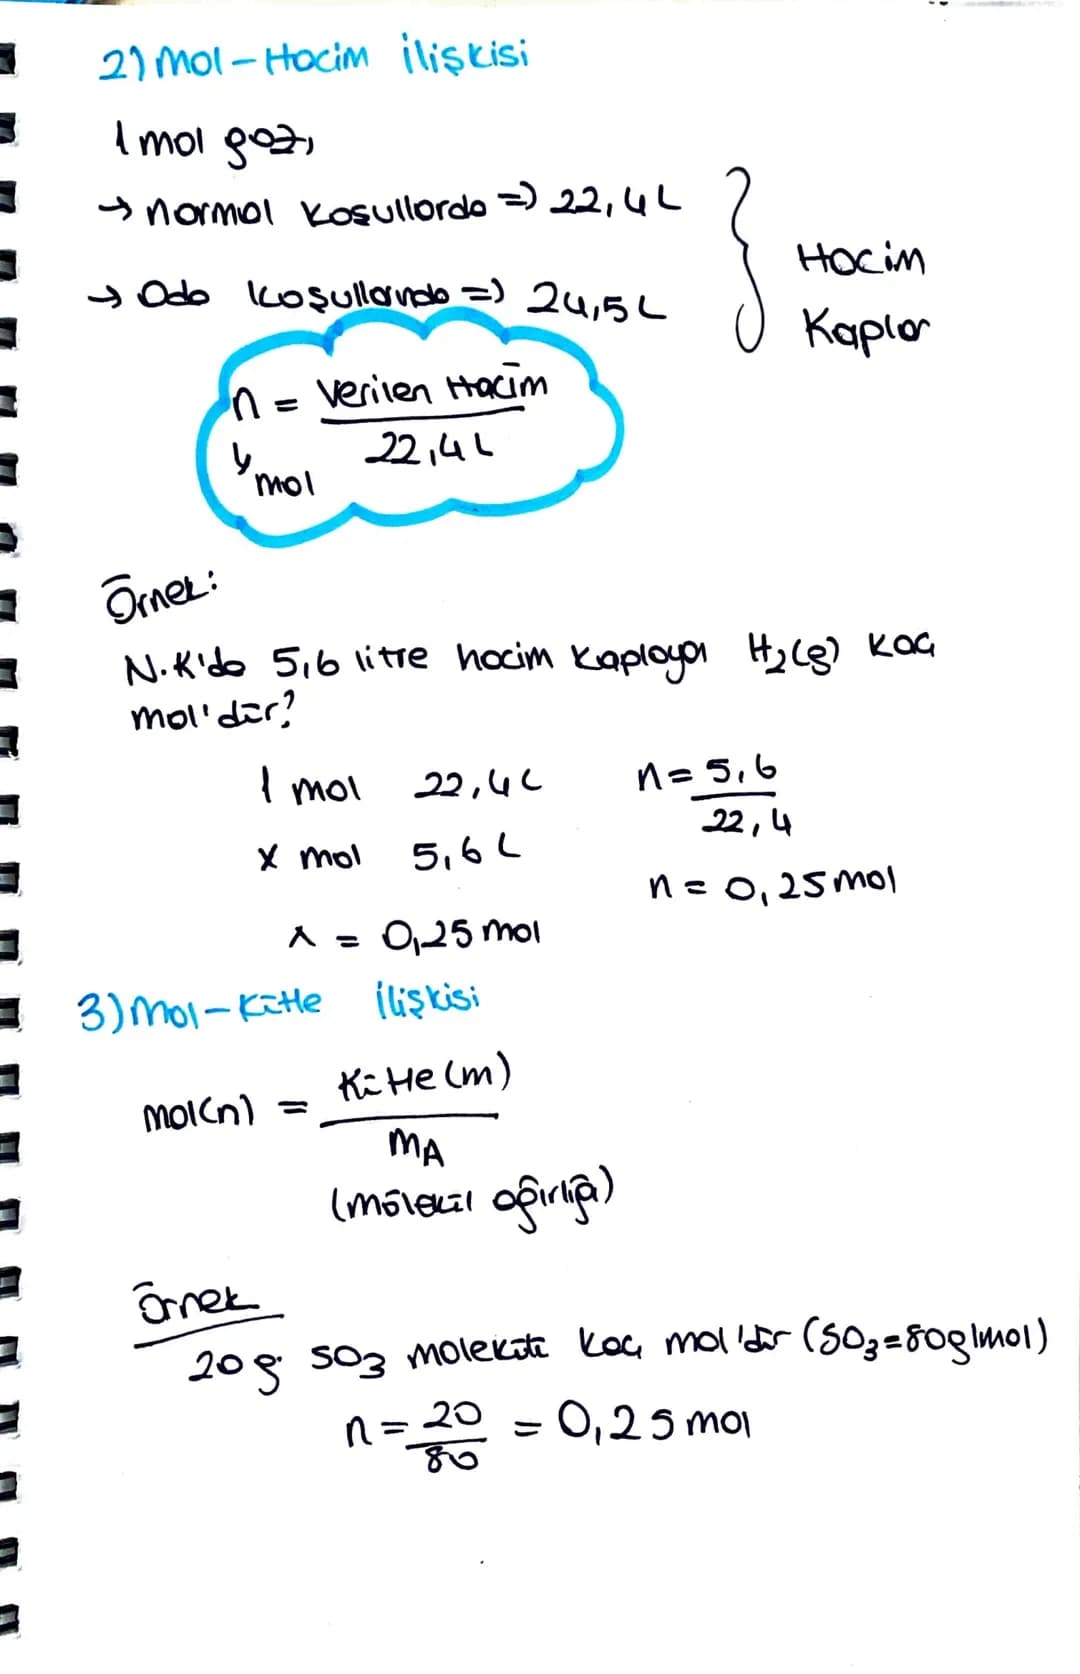 2) Mol - Hacim İlişkisi
1 mol gaz,
→ normal koşullarda => 22,4 L
→ Oda koşullarında => 24,5 L
Hacim
Kaplar
n = Verilen Hacim / 22,4 L
↳ mol
Örnek:
N.K'da 5,6 litre hacim kaplayan H₂(g) kaç
mol'dür?
1 mol 22,4 L
x mol 5,6 L
x = 0,25 mol
n = 5,6 / 22,4
n = 0,25 mol
3) Mol - Kütle İlişkisi
mol(n) = Kütle (m) / mA
(mölekül ağırlığı)
Örnek
20 g SO₃ molekülü kaç mol'dür (SO₃=80g/mol)
n = 20 / 80 = 0,25 mol